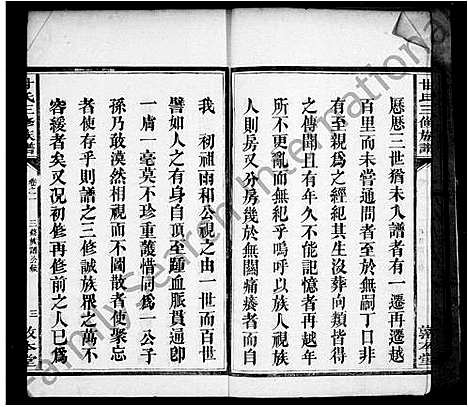 甘氏三修族譜
敦本堂
歷歷三世猶未入譜者有一遷再遷越
百里而未嘗通問者至於無嗣丁口非
至親爲之經紀其生沒葬向類皆得
之傳聞且有年久不能記憶者再越年
所不更亂而無紀乎嗚呼以族人視族
人則房又分房幾於無關痛癢者自
我　初祖雨和公視之由一世而百世
譬如人之有身自頂至踵血脈貫通即
一膚一毫莫不珍重護惜同爲一公子
孫乃敢漠然相視而不圖散者使聚忘
者使存乎則譜之三修誠族眾之萬不
容緩者矣又況初修再修前之人已爲
甘氏三修族譜
卷之一
三修族譜公啟
三
敦本堂
FamilySearch International